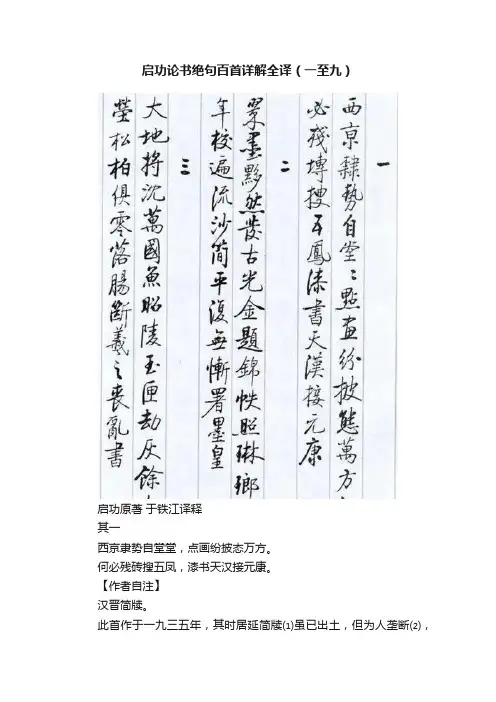 启功论书绝句百首详解全译（一至九）
一
西京隸勢自堂〻點画紛披態萬方何
必殘塼搜五鳳漆書天漢接元康
二
翠墨黟然發古光金題錦帙照琳瑯
年校遍流沙簡平復無慚署墨皇
三
大地將沈萬國魚昭陵玉匣劫灰餘
塋松柏俱零落腸斷羲之喪亂書
启功原著 于铁江译释
其一
西京隶势自堂堂，点画纷披态万方。
何必残砖搜五凤，漆书天汉接元康。
【作者自注】
汉晋简牍。
此首作于一九三五年，其时居延简牍⑴虽已出土，但为人垄断⑵，